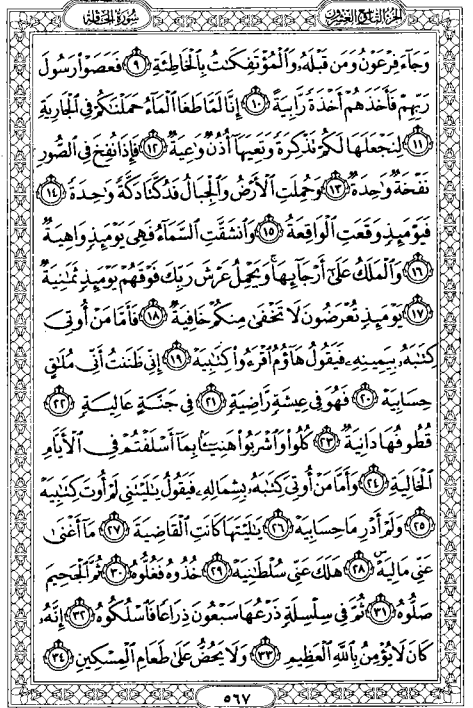 سُورَةُ الْحَاقَّةِ الجُزْءُ التَّاسِعُ وَالعِشْرُونَ
وَجَآءَ فِرْعَوْنُ وَمَن قَبْلَهُۥ وَٱلْمُؤْتَفِكَـٰتُ بِٱلْخَاطِئَةِ ۝٩ فَعَصَوْا۟ رَسُولَ
رَبِّهِمْ فَأَخَذَهُمْ أَخْذَةً رَّابِيَةً ۝١٠ إِنَّا لَمَّا طَغَا ٱلْمَآءُ حَمَلْنَـٰكُمْ فِى ٱلْجَارِيَةِ
۝١١ لِنَجْعَلَهَا لَكُمْ تَذْكِرَةً وَتَعِيَهَآ أُذُنٌ وَٰعِيَةٌ ۝١٢ فَإِذَا نُفِخَ فِى ٱلصُّورِ
نَفْخَةٌ وَٰحِدَةٌ ۝١٣ وَحُمِلَتِ ٱلْأَرْضُ وَٱلْجِبَالُ فَدُكَّتَا دَكَّةً وَٰحِدَةً ۝١٤
فَيَوْمَئِذٍ وَقَعَتِ ٱلْوَاقِعَةُ ۝١٥ وَٱنشَقَّتِ ٱلسَّمَآءُ فَهِىَ يَوْمَئِذٍ وَاهِيَةٌ
۝١٦ وَٱلْمَلَكُ عَلَىٰٓ أَرْجَآئِهَا ۚ وَيَحْمِلُ عَرْشَ رَبِّكَ فَوْقَهُمْ يَوْمَئِذٍ ثَمَـٰنِيَةٌ
۝١٧ يَوْمَئِذٍ تُعْرَضُونَ لَا تَخْفَىٰ مِنكُمْ خَافِيَةٌ ۝١٨ فَأَمَّا مَنْ أُوتِىَ
كِتَـٰبَهُۥ بِيَمِينِهِۦ فَيَقُولُ هَآؤُمُ ٱقْرَءُوا۟ كِتَـٰبِيَهْ ۝١٩ إِنِّى ظَنَنتُ أَنِّى مُلَـٰقٍ
حِسَابِيَهْ ۝٢٠ فَهُوَ فِى عِيشَةٍ رَّاضِيَةٍ ۝٢١ فِى جَنَّةٍ عَالِيَةٍ ۝٢٢
قُطُوفُهَا دَانِيَةٌ ۝٢٣ كُلُوا۟ وَٱشْرَبُوا۟ هَنِيٓـًٔۢا بِمَآ أَسْلَفْتُمْ فِى ٱلْأَيَّامِ
ٱلْخَالِيَةِ ۝٢٤ وَأَمَّا مَنْ أُوتِىَ كِتَـٰبَهُۥ بِشِمَالِهِۦ فَيَقُولُ يَـٰلَيْتَنِى لَمْ أُوتَ كِتَـٰبِيَهْ
۝٢٥ وَلَمْ أَدْرِ مَا حِسَابِيَهْ ۝٢٦ يَـٰلَيْتَهَا كَانَتِ ٱلْقَاضِيَةَ ۝٢٧ مَآ أَغْنَىٰ
عَنِّى مَالِيَهْ ۜ ۝٢٨ هَلَكَ عَنِّى سُلْطَـٰنِيَهْ ۝٢٩ خُذُوهُ فَغُلُّوهُ ۝٣٠ ثُمَّ ٱلْجَحِيمَ
صَلُّوهُ ۝٣١ ثُمَّ فِى سِلْسِلَةٍ ذَرْعُهَا سَبْعُونَ ذِرَاعًا فَٱسْلُكُوهُ ۝٣٢ إِنَّهُۥ
كَانَ لَا يُؤْمِنُ بِٱللَّهِ ٱلْعَظِيمِ ۝٣٣ وَلَا يَحُضُّ عَلَىٰ طَعَامِ ٱلْمِسْكِينِ ۝٣٤
٥٦٧